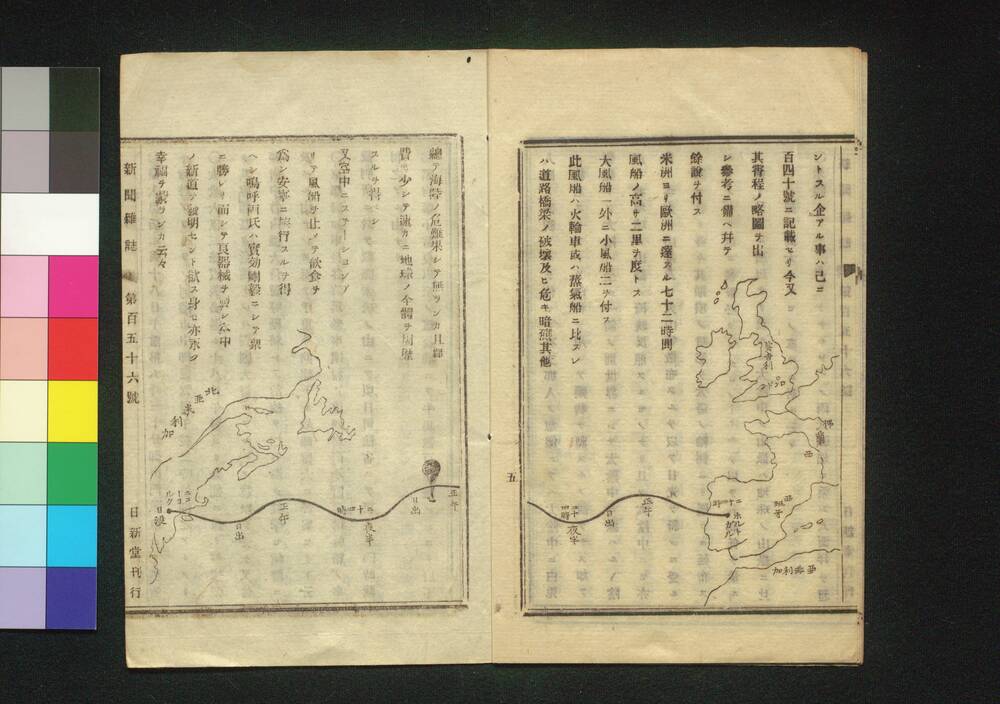 ントスル企アル事ハ已ニ
百四十號ニ記載セリ今又
其寄程ノ略圖ヲ出
シ參考ニ備ヘ幷テ
餘說ヲ付ス
米洲ヨリ歐洲ニ達スル七十二時間
風船ノ高サ二里ヲ度トス
大風船一外ニ小風船二ヲ付ス
此風船ハ火輪車或ハ蒸氣船ニ比スレ
ハ道路橋梁ノ破壞及ヒ危キ暗礁其他
英吉利
ロンドン
亞非利加
ホルトガル
二十四時
正午
日出
夜半
二十四時
五
總テ海陸ノ危難果シテ無ツンカ且
費少シテ速カニ地球ノ全體ヲ周歷
スルヲ得ヘシ
又空中ニステーションア
リテ風船ヲ止メテ飲食ヲ
為シ安寧ニ旅行スルヲ得
ヘシ嗚呼両氏ハ實効剛毅ニシテ衆
ニ勝レリ而シテ良器械ヲ製シ空中
ノ新道ヲ發明セント欲ス身モ亦永ク
幸福ヲ蒙ランカ云々
正午
日出
夜半
二十四時
正午
日出
日没
ニューヨールク
北亞米利加
新聞雜誌 第百五十六號
日新堂刊行